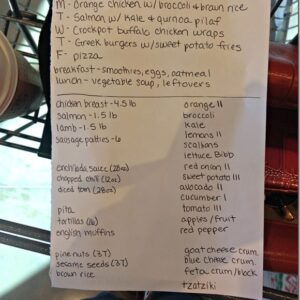 M- Orange chicken w/ broccoli & brown rice
T - Salmon w/ kale & quinoa pilaf
W- Crockpot buffalo chicken wraps
T - Greek burgers w/ sweet potato fries
F- pizza
breakfast - smoothies, eggs, oatmeal
lunch - vegetable soup, leftovers
chicken breast - 4.5 lb
salmon - 1.5 lb
lamb - 1.5 lb
sausage patties - 6
enchilada sauce (28oz)
chopped chili (12oz)
diced tom (28oz)
pita
tortillas (16)
english muffins
pine nuts (3T)
sesame seeds (3T)
brown rice
orange II
broccoli
kale
lemons II
scallions
lettuce Bibb
red onion II
sweet potato III
avocado II
cucumber I
tomato III
apples / fruit
red pepper
goat cheese crum.
blue cheese crum.
feta crum/block
tzatziki